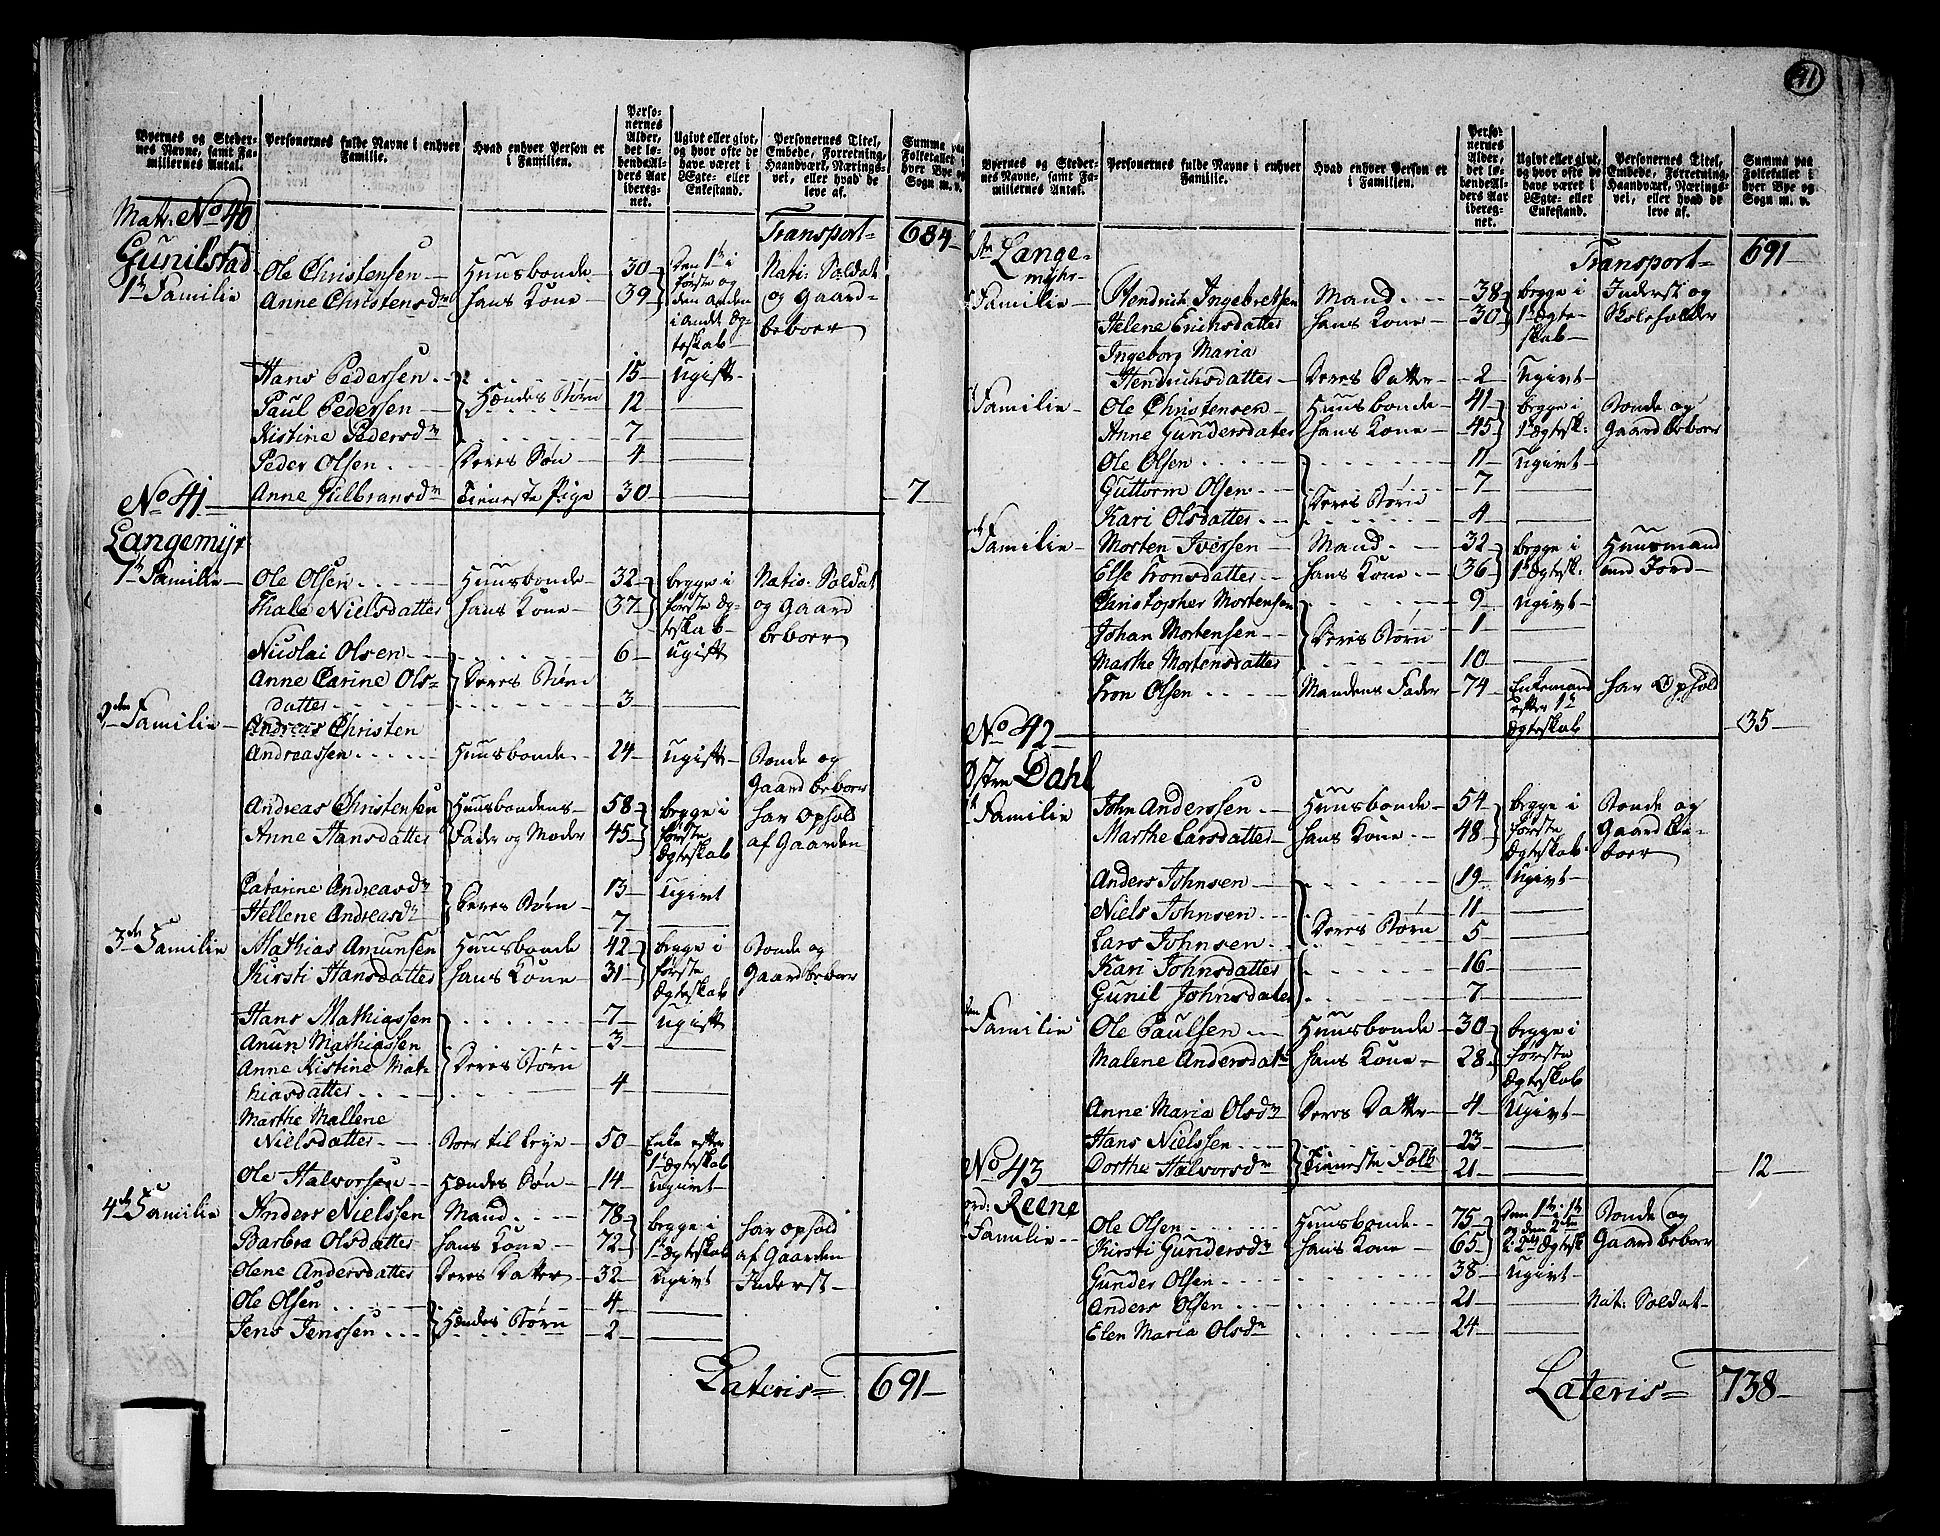 91
Byernes og Stedernes Navne, samt Familiernes Antal. | Personernes fulde Navne i enhver Familie. | Hvad enhver Person er i Familien. | Personernes Alder, det løbende Alders Aar iberegnet. | Ugivt eller givt, og hvor ofte de have været i Ægte- eller Enkestand. | Personernes Titel, Embede, Forretning, Haandværk, Næringsvei, eller hvad de leve af. | Summa paa Folketallet i hver Bye og Sogn m. v.
Mat: No 40
Transport= 684
Gunilstad
1te Familie
Ole Christensen | Huusbonde | 30 | Den 1te i første og den anden i andet Ægteskab | Nati: Soldat og Gaardbeboer
Anne Christensdr | hans Kone | 39
Hans Pedersen | 15 | Ugift
Paul Pedersen | Hendes Børn | 12
Kistine Pedersdr | 7
Peder Olsen | Deres Søn | 4
Anne Gulbransdr | Tieneste Pige | 30 | 7
No 41
Langemyr
1te Familie
Ole Olsen | Huusbonde | 32 | begge i første Ægteskab | Natio: Soldat og Gaardbeboer
Thale Nielsdatter | hans Kone | 37
Nicolai Olsen | 6 | Ugift
Anne Carine Olsdatter | Deres Børn | 3
2den Familie
Andreas Christen
Andreassen | Huusbonde | 24 | Ugift | Bonde og Gaardbeboer
Andreas Christensen | Huusbondens | 58 | begge i første Ægteskab | har Ophold af Gaarden
Anne Hansdatter | Fader og Moder | 45
Catarine Andreasdr | Deres Børn | 13 | Ugivt
Hellene Andreasdr | 7
3de Familie
Mathias Amunsen | Huusbonde | 42 | begge i første Ægteskab | Bonde og Gaardbeboer
Kirsti Hansdatter | hans Kone | 31
Hans Mathiassen | 7 | Ugift
Anun Mathiassen | Deres Børn | 3
Anne Kistine Mathiasdatter | 4
Marthe Mallene
Nielsdatter | Boer til Leye | 50 | Enke efter 1te Ægteskab
Ole Halvorsen | Hendes Søn | 14 | Ugivt
4de Familie
Anders Nielssen | Mand | 78 | begge i 1te Ægteskab | har Ophold af Gaarden
Barbra Olsdatter | hans Kone | 72
Olene Andersdatter | Deres Datter | 32 | Ugivt | Inderst
Ole Olsen | Hendes Børn | 4
Jens Jenssen | 2
Lateris= 691
Byernes og Stedernes Navne, samt Familiernes Antal. | Personernes fulde Navne i enhver Familie. | Hvad enhver Person er i Familien. | Personernes Alder, det løbende Alders Aar iberegnet. | Ugivt eller givt, og hvor ofte de have været i Ægte- eller Enkestand. | Personernes Titel, Embede, Forretning, Haandværk, Næringsvei, eller hvad de leve af. | Summa paa Folketallet i hver Bye og Sogn m. v.
Transport= 691
Langemyhr
Familie
Hendrich Ingebretsen | Mand | 38 | begge i 1te Ægteskab | Inderst og Skoleholder
Helene Erichsdatter | hans Kone | 30
Ingeborg Maria
Hendrichsdatter | Deres Datter | 2 | Ugivt
Familie
Ole Christensen | Huusbonde | 41 | begge i 1te Ægtesk: | Bonde og Gaardbeboer
Anne Gundersdater | hans Kone | 45
Ole Olsen | 11 | Ugivt
Guttorm Olsen | Deres Børn | 7
Kari Olsdatter | 4
Familie
Morten Iversen | Mand | 32 | begge i 1te Ægtesk: | Huusmand med Jord
Else Tronsdatter | hans Kone | 36
Christopher Mortensen | 9 | Ugivt
Johan Mortensen | Deres Børn | 1
Marthe Mortensdatter | 10
Tron Olsen | Mandens Fader | 74 | Enkemand efter 1te Ægteskab | har Ophold | 35
No 42
Østre Dahl
Familie
John Anderssen | Huusbonde | 54 | begge i første Ægteskab | Bonde og Gaardbeboer
Marthe Larsdatter | hans Kone | 48
Anders Johnsen | 19 | Ugivt
Niels Johnsen | Deres Børn | 11
Lars Johnsen | 5
Kari Johnsdatter | 16
Gunil Johnsdater | 7
Familie
Ole Paulsen | Huusbonde | 30 | begge i første Ægteskab
Malene Andersdatr | hans Kone | 28
Anne Maria Olsdr | Deres Datter | 4 | Ugivt
Hans Nielssen | Tieneste Folk | 23
Dorthe Halvorsdr | 21 | 12
No 43
ord: Reene
Familie
Ole Olsen | Huusbonde | 75 | Den 1te i 1te og den 2den i 2det Ægtesk | Bonde og Gaardbeboer
Kirsti Gundersdr | hans Kone | 65
Gunder Olsen | 38 | Ugivt
Anders Olsen | 21 | Nat: Soldat
Elen Maria Olsdr | 24
Lateris= 738